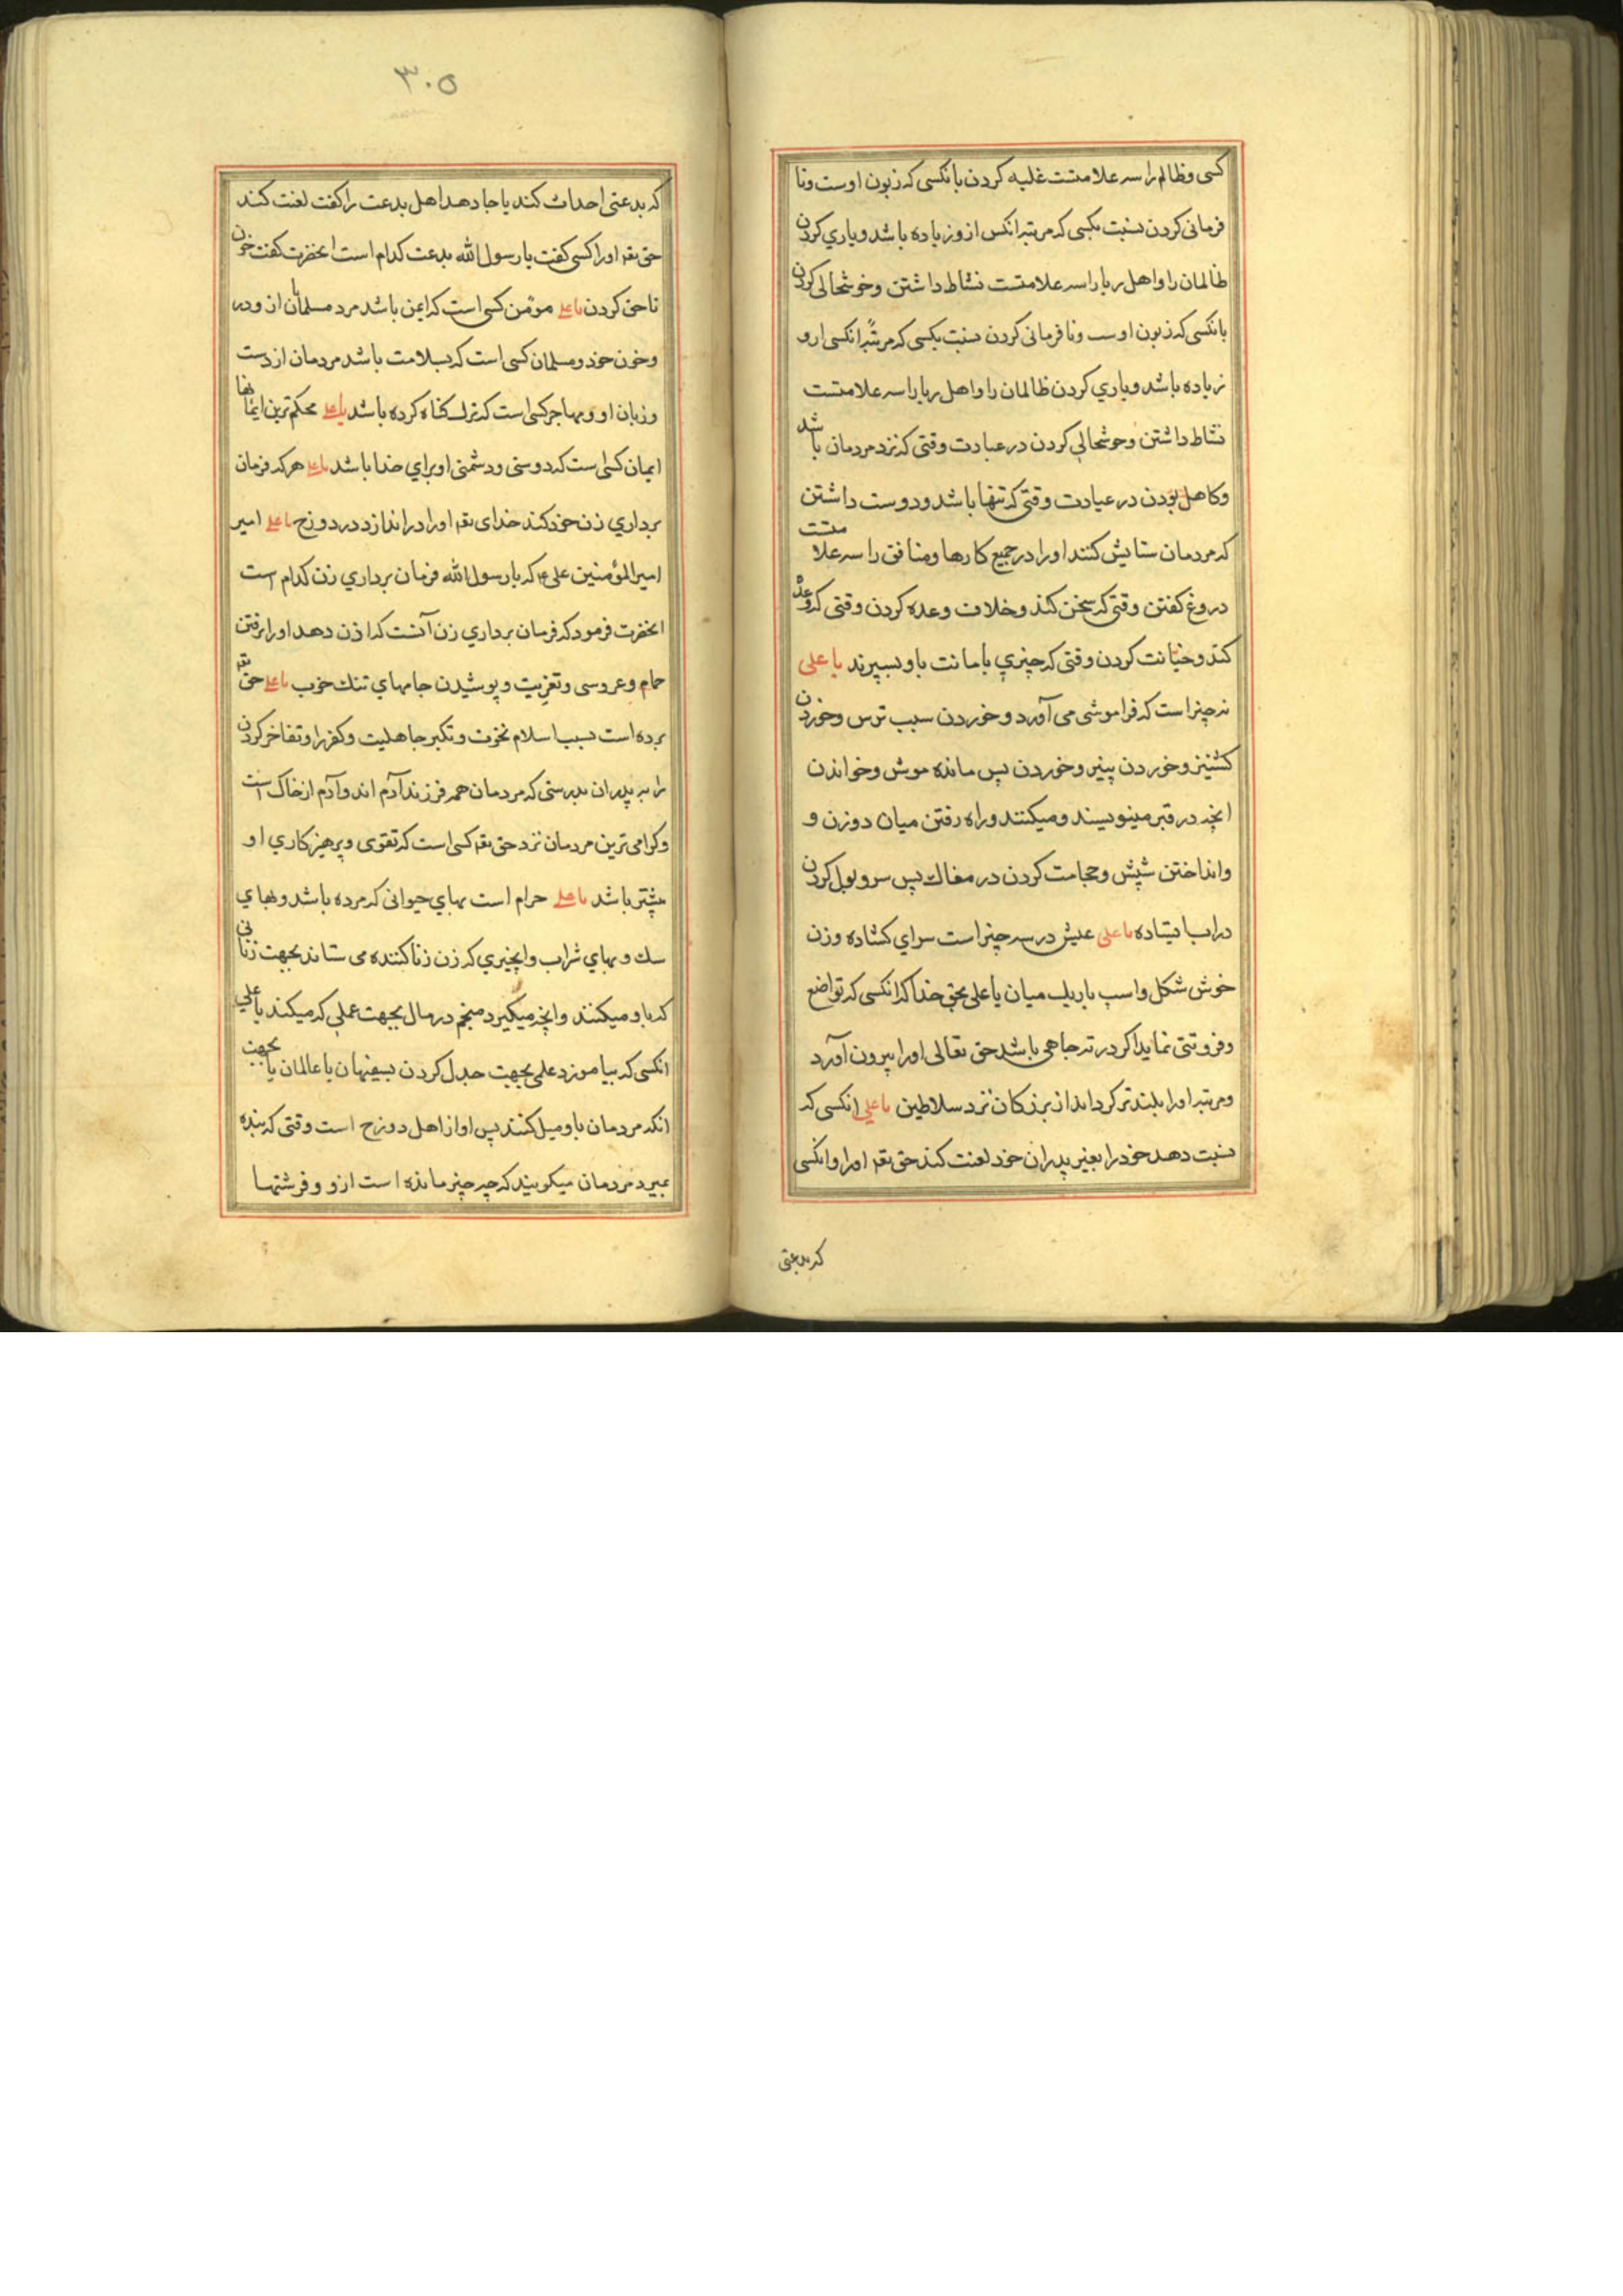 کسی وظالم را سه علامتست غلبه کردن بانکسی که زبون اوست ونا
فرمانی کردن نسبت بکسی که مرتبه انکس ازو زیاده باشد ویاري کردن
ظالمان را واهل ریا را سه علامتست نشاط داشتن وخوشحالی کردن
بانکسی که زبون اوست ونا فرمانی کردن نسبت بکسی که مرتبه انکسی ازو
زیاده باشد ویاري کردن ظالمان را واهل ریا را سه علامتست
نشاط داشتن وخوشحالي کردن در عبادت وقتی که نزد مردمان باشد
وکاهل بودن در عبادت وقتی که تنها باشد ودوست داشتن
که مردمان ستایش کنند اورا در جمیع کارها ومنافق را سه علامتست
دروغ کفتن وقتی که سخن کند وخلاف وعده کردن وقتی که وعده
کند وخیانت کردن وقتی که چیزي بامانت باو بسپرند یا علی
نه چیز است که فراموشی می آورد وخوردن سیب ترس وخوردن
کشنیز وخوردن پنیر وخوردن پس مانده موش وخواندن
انچه در قبر مینویسند ومیکنند وراه رفتن میان دوزن و
وانداختن شپش وحجامت کردن در مغاك پس سر وبول کردن
در اب ایستاده یا علی عیش در سه چیز است سراي کشاده وزن
خوش شکل واسپ باریك میان یا علی بحق خدا که انکسی که تواضع
وفروتنی نماید اکر در ته چاهی باشد حق تعالی اورا بیرون آورد
ومرتبه اورا بلند تر کرداند از بزرکان نزد سلاطین یا علي انکسی که
نسبت دهد خود را بغیر پدران خود لعنت کند حق تعه اورا وانکسی
که بدعتی
۳۰۵
که بدعتی احداث کند یا جا دهد اهل بدعت را کفت لعنت کند
حق تعه اورا کسی کفت یا رسول الله بدعت کدام است انحضرت کفت خون
ناحق کردن یا علي مومن کسی است که ایمن باشد مرد مسلمان ازو در
وخون خود ومسلمان کسی است که بسلامت باشد مردمان از دست
وزبان او ومهاجر کسی است که ترك کناه کرده باشد یا علي محکم ترین ایمانها
ایمان کسی است که دوستی ودشمنی او براي خدا باشد یا علي هر که فرمان
برداري زن خود کند خدای تعه اورا در اندازد در دوزخ یا علي امیر
امیرالمؤمنین علی ع که یا رسول الله فرمان برداري زن کدام است
انحضرت فرمود که فرمان برداري زن آنست که اذن دهد اورا برفتن
حمام وعروسی وتعزیت وپوشیدن جامهاي تنك خوب یا علي حق تعه
برده است بسبب اسلام نخوت وتکبر جاهلیت وکفر را وتفاخر کردن
را به پدران بدرستی که مردمان همه فرزند آدم اند وآدم از خاك است
وکرامی ترین مردمان نزد حق تعه کسی است که تقوی وپرهیزکاري او
بیشتر باشد یا علي حرام است بهاي حیوانی که مرده باشد وبهاي
سك وبهاي شراب وانچیزي که زن زنا کننده می ستاند بجهت زنائی
که باو میکنند وانچه میکیرد منجم در مال بجهت عملی که میکند یا علي
انکسی که بیاموزد علمی بجهت جدل کردن بسفیهان یا عالمان یا بجهت
انکه مردمان باو میل کنند پس او از اهل دوزخ است وقتی که بنده
بمیرد مردمان میکویند که چه چیز مانده است ازو وفرشتها